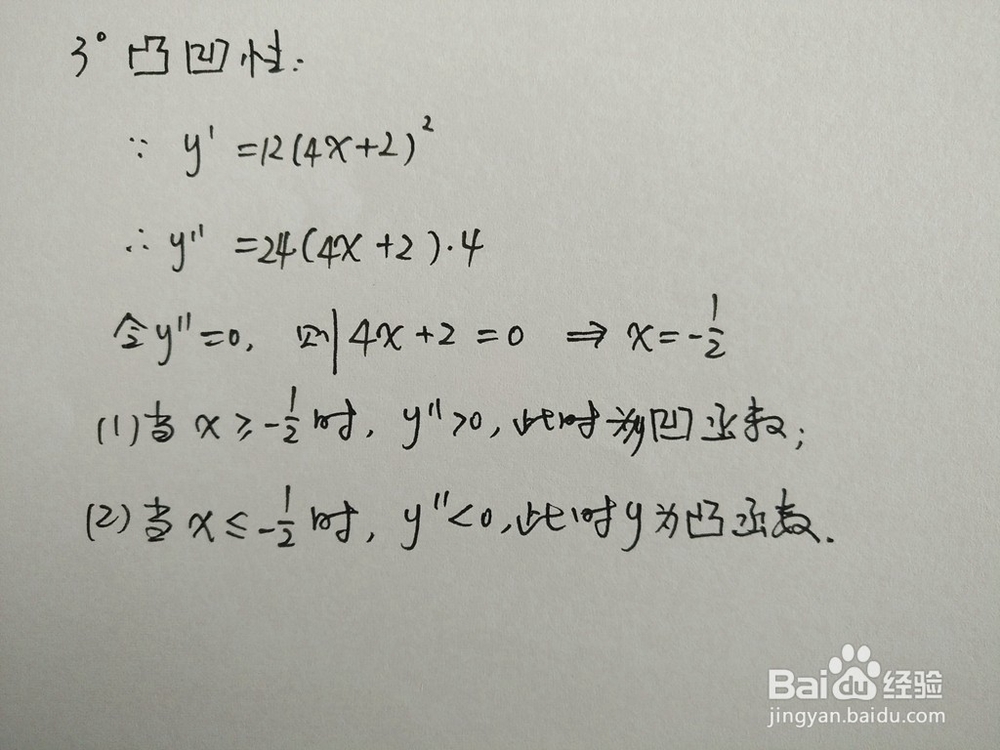 3° 凸凹性:
∵ y' =12(4x+2)²
∴ y'' =24(4x+2)·4
令y''=0, 则4x+2=0 ⇒ x=-1/2
(1)当x≥-1/2时, y''>0, 此时为凹函数;
(2)当x≤-1/2时, y''<0, 此时y为凸函数.
Baidu经验
jingyan.baidu.com